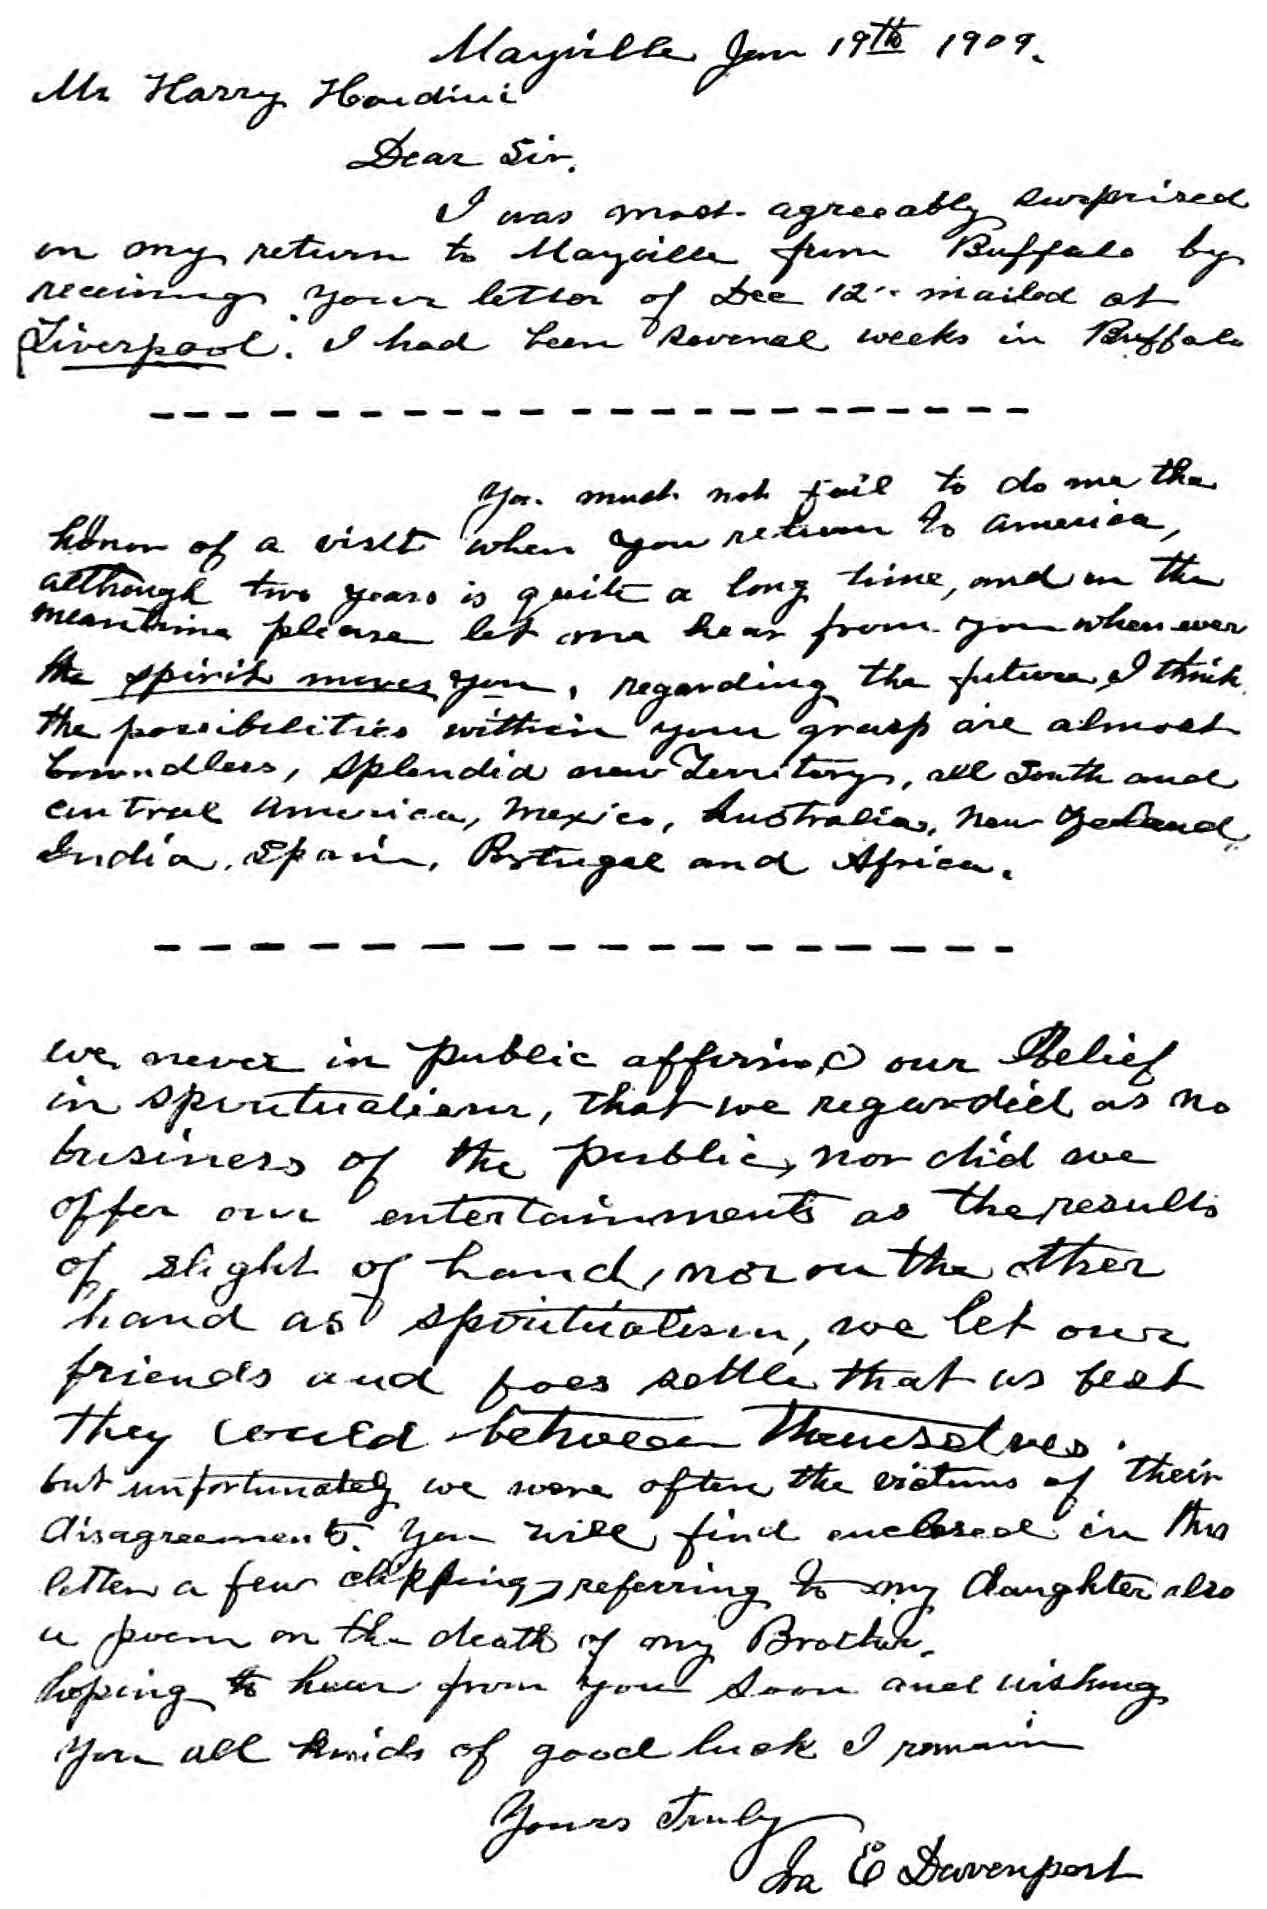 Mayville Jan 19th 1909.
Mr Harry Houdini
Dear Sir.
I was most agreeably surprised
on my return to Mayville from Buffalo by
receiving your letter of Dec 12" mailed at
Liverpool. I had been several weeks in Buffalo
You must not fail to do me the
honor of a visit when you return to america,
although two years is quite a long time, and in the
meantime please let me hear from you when ever
the spirit moves you, regarding the future I think
the possibilities within your grasp are almost
boundless, splendid new Territory, all South and
central America, Mexico, Australia, New Zealand,
India, Spain, Portugal and Africa.
we never in public affirmed our Belief
in spiritualism, that we regarded as no
business of the public, nor did we
offer our entertainments as the results
of slight of hand, nor on the other
hand as spiritualism, we let our
friends and foes settle that as best
they could between themselves.
but unfortunately we were often the victims of their
disagreements. You will find enclosed in this
letter a few clippings referring to my daughter also
a poem on the death of my Brother.
hoping to hear from you soon and wishing
you all kinds of good luck I remain
Yours Truly
Ira E Davenport